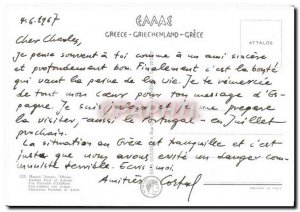 4.6.1967
ΕΛΛΑΣ
GREECE - GRIECHENLAND - GRÈCE
ATTALOS
Cher Charles,
je pense souvent à toi comme à un ami sincère
et profondement bon. Finalement c'est la bonté
qui vaut la peine de la vie. Je te remercie
de tout mon cœur pour ton message d'Es-
pagne. Je suis et je me prepare
la visiter, aussi le Portugal - en Juillet
prochain.
La situation en Grèce est tranquille et c'est
juste que nous avons évité un danger com-
muniste terrible. Ecris moi.
Amitiés